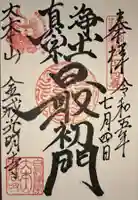 奉拝 令和五年
七月四日
浄土
真宗
最初門
大本山
金戒光明寺